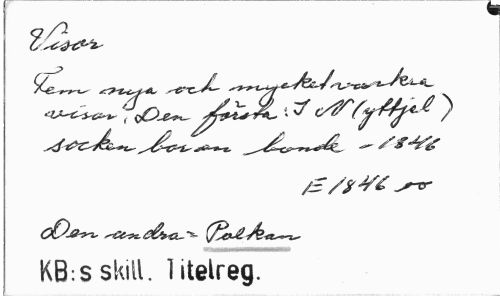 Visor
Fem nya och mycket vackra
visor. Den första: I N (yttjel)
socken bor en bonde - 1846
E 1846 oo
Den andra = Polkan
KB:s skill. Titelreg.